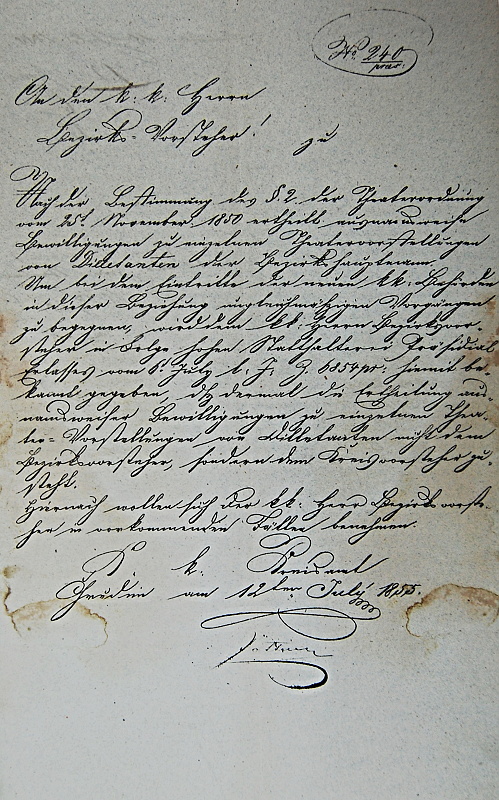 No. 240
praes.
An den k: k: Herrn
Bezirks-Vorsteher! zu
Nach der Bestimmung des §. 2. der Theaterordnung
vom 25t. November 1850 ertheilt ausnahmsweise
Bewilligungen zu einzelnen Theatervorstellungen
von Diletanten der Bezirkshauptmann.
Um bei dem Eintritte der neuen kk: Behörden
in dieser Beziehung ungleichmäßigen Vorgängen
zu begegnen, wird dem kk: Herrn Bezirksvor-
steher in Folge hohen Statthalterei Präsidial
Erlasses vom 6t. July l. J. Z. 6854 pr: hiemit be-
kannt gegeben, daß dermal die Ertheilung aus-
nahmsweiser Bewilligungen zu einzelnen Thea-
ter-Vorstellungen von Dilletanten nicht dem
Bezirksvorsteher, sondern dem Kreisvorsteher zu-
steht.
Hiernach wollen sich der kk: Herr Bezirksvorste-
her in vorkommenden Fällen benehmen.
K. k. Kreisamt
Chrudim am 12ten July 1855.